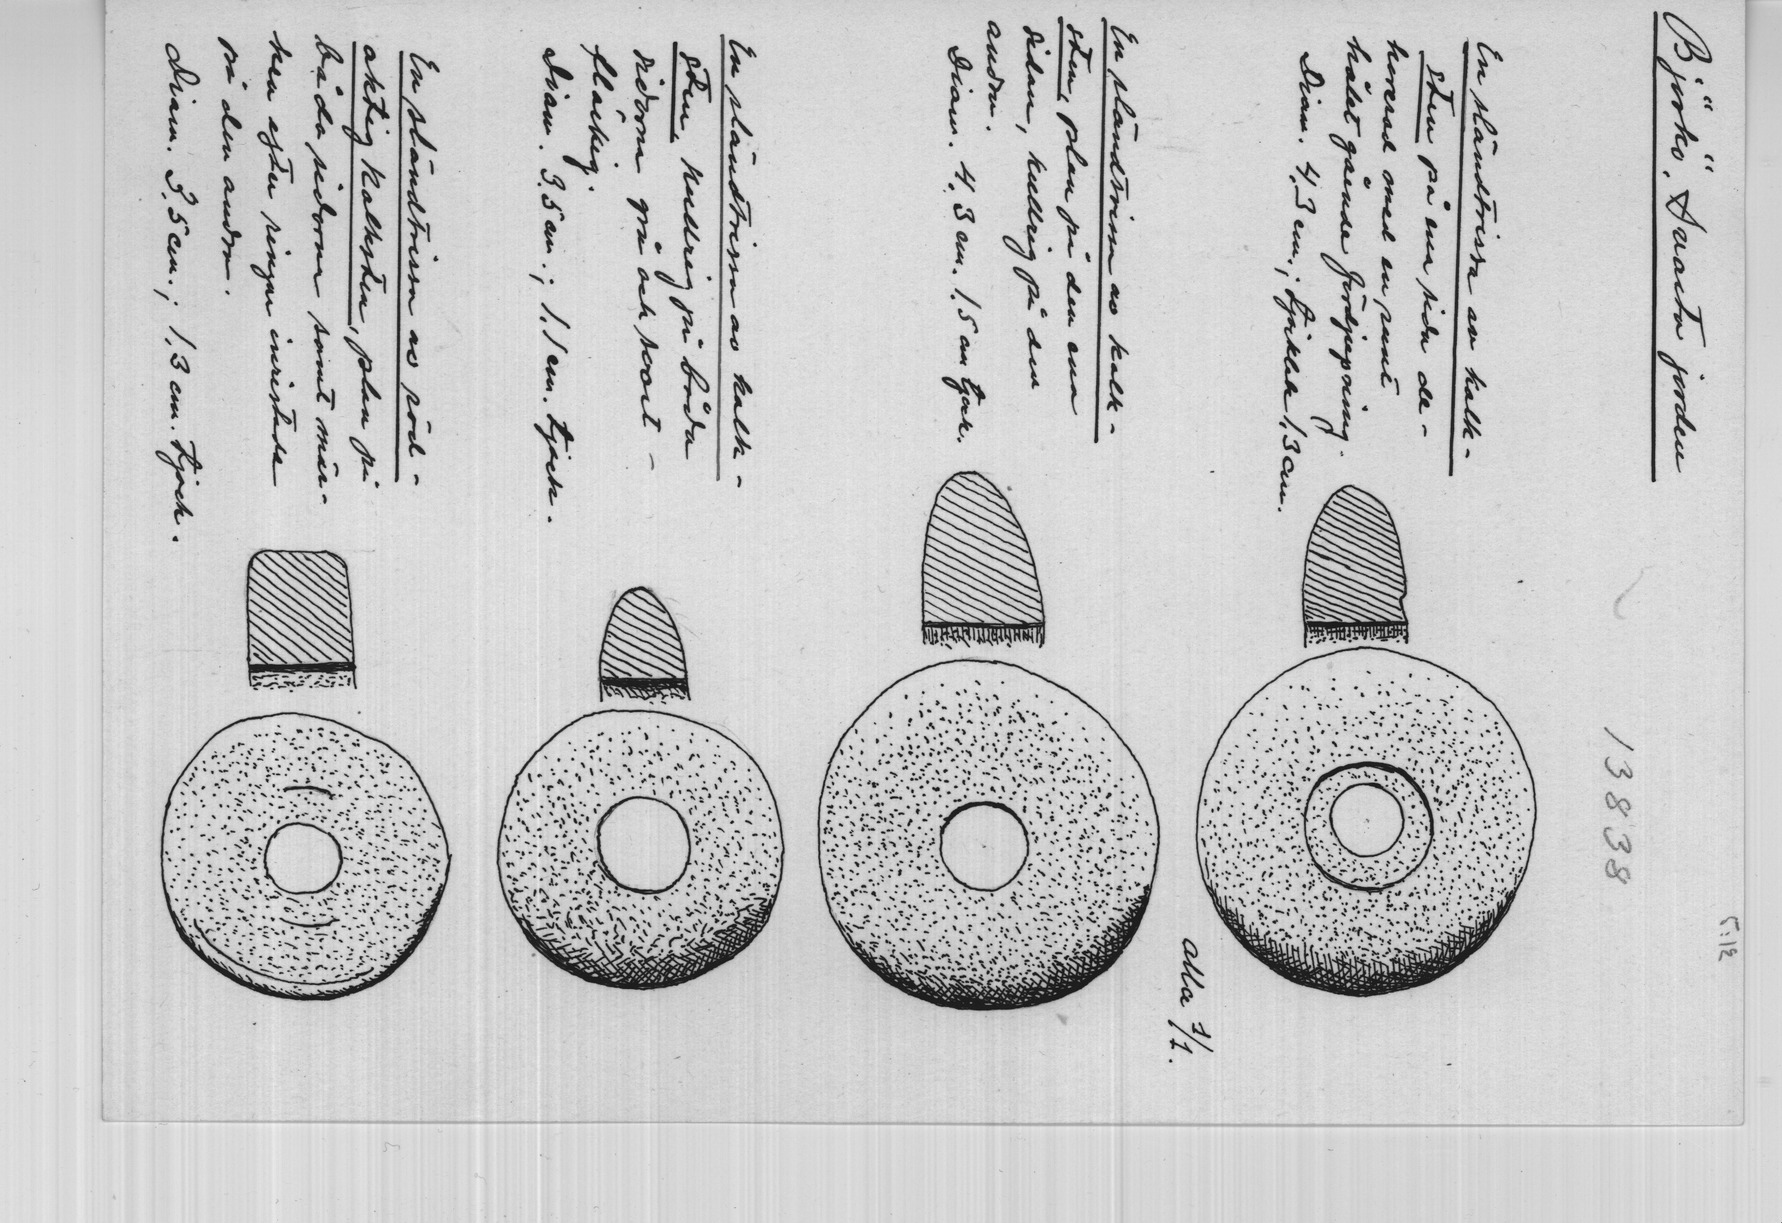 Björkö. Svarta jorden
13838
5:12
En sländtrissa av kalk-
sten på ena sidan de-
korerad med en runt
hålet gående fördjupning.
Diam. 4,3 cm.; tjocklek 1,3 cm.
En sländtrissa av kalk-
sten, plan på den ena
sidan, kullrig på den
andra.
Diam. 4,3 cm. 1,5 cm tjock.
alla 1/1.
En sländtrissa av kalk-
sten, kullrig på båda
sidorna grå och svart-
fläckig.
Diam. 3,5 cm.; 1,1 cm. tjock.
En sländtrissa av röd-
aktig kalksten, plan på
båda sidorna samt mär-
ken efter ringar inristade
på den andra.
Diam. 3,5 cm.; 1,3 cm. tjock.